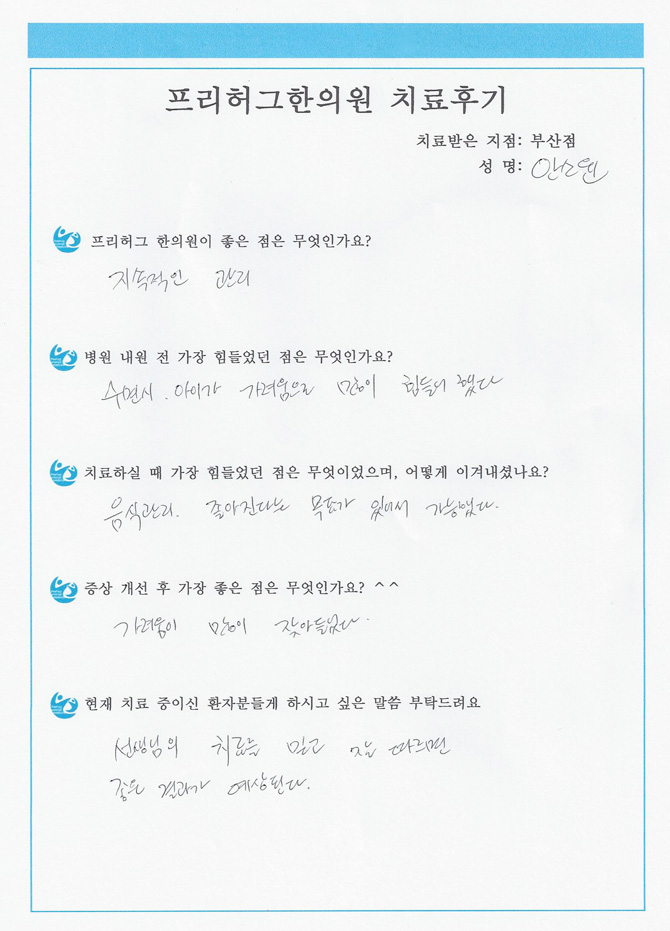 프리허그한의원 치료후기
치료받은 지점: 부산점
성 명: 안소원
프리허그 한의원이 좋은 점은 무엇인가요?
지속적인 관리
병원 내원 전 가장 힘들었던 점은 무엇인가요?
수면시. 아이가 가려움으로 많이 힘들어 했다
치료하실 때 가장 힘들었던 점은 무엇이었으며, 어떻게 이겨내셨나요?
음식관리. 좋아진다는 목표가 있어서 가능했다.
증상 개선 후 가장 좋은 점은 무엇인가요? ^^
가려움이 많이 잦아들었다.
현재 치료 중이신 환자분들게 하시고 싶은 말씀 부탁드려요
선생님의 치료를 믿고 잘 따르면
좋은 결과가 예상된다.